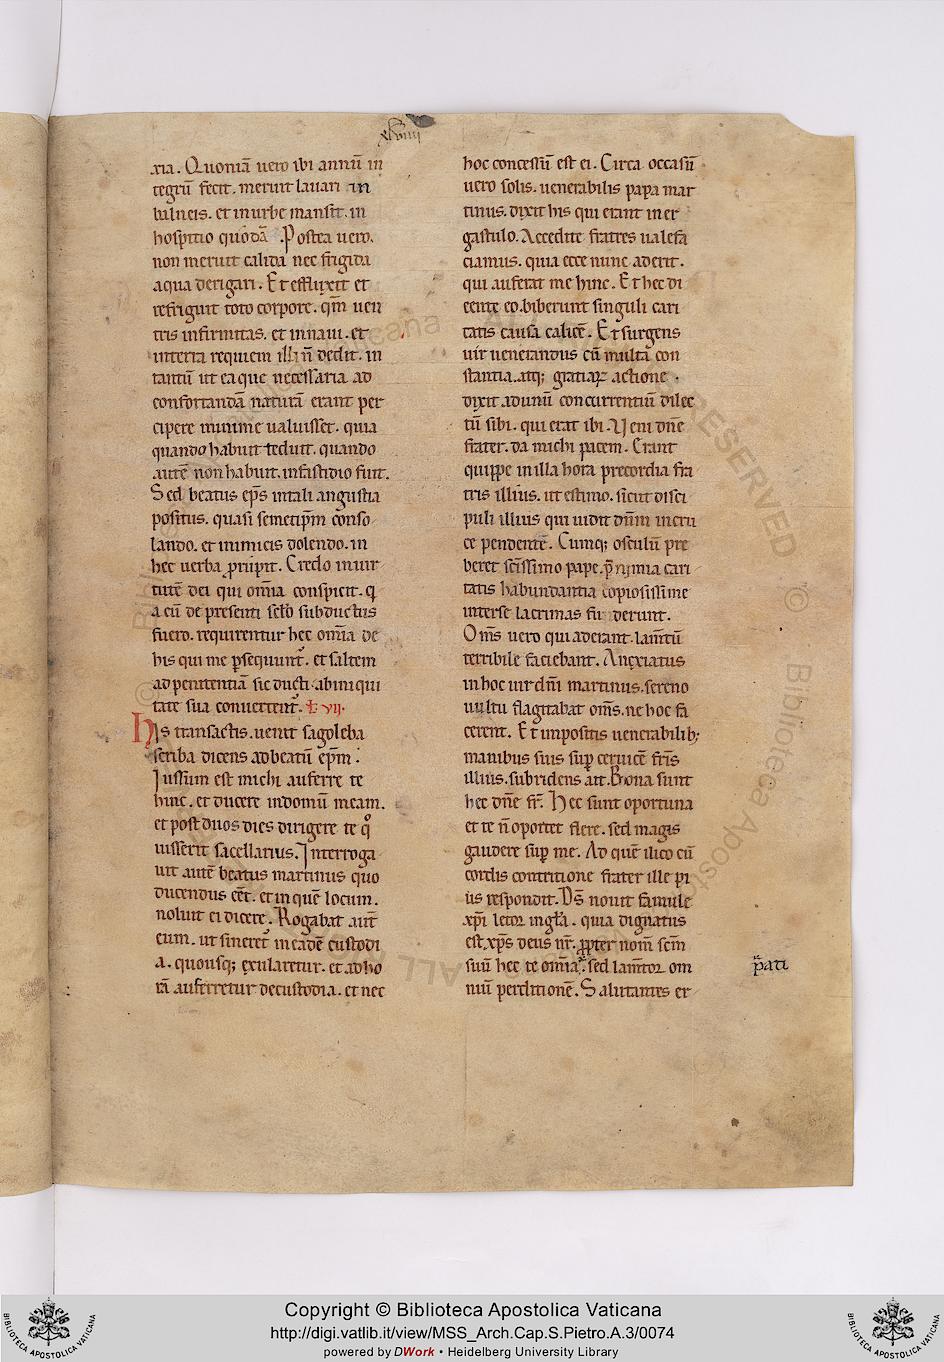 xlviiii
xia. Quoniã uero ibi annũ in
tegrũ fecit. meruit lauari in
balneis. et in urbe mansit. in
hospitio quodã. Postea uero.
non meruit calida nec frigida
aqua derigari. Et effluxit et
refriguit toto corpore. qm̃ uen
tris infirmitas. et in naui. et
in terra requiem illi ñ dedit. in
tantũ ut ea que necessaria ad
confortandã naturã erant per
cipere minime ualuisset. quia
quando habuit teduit. quando
autẽ non habuit. in fastidio fuit.
Sed beatus ep̃s in tali angustia
positus. quasi semetip̃m conso
lando. et inimicis dolendo. in
hec uerba prũpit. Credo in uir
tutẽ dei qui om̃ia conspicit. q
a cũ de presenti sclo subductus
fuero. requirentur hec om̃ia de
his qui me psequunt. et saltem
ad penitentiã sic ducti. ab iniqui
tate sua conuertent. L vij.
His transactis. uenit sagoleba
scriba dicens ad beatũ ep̃m.
Iussum est michi auferre te
hinc. et ducere in domũ meam.
et post duos dies dirigere te qͦ
iusserit sacellarius. Interroga
uit autẽ beatus martinus quo
ducendus cẽt. et in quẽ locum.
noluit ei dicere. Rogabat aut̃
eum. ut sineret in eadẽ custodi
a. quousq; exularetur. et ad ho
rã auferretur de custodia. et nec
hoc concessũ est ei. Circa occasũ
uero solis. uenerabilis papa mar
tinus. dixit his qui erant in er
gastulo. Accedite fratres ualefa
ciamus. quia ecce nunc aderit.
qui auferat me hinc. Et hec di
cente eo. biberunt singuli cari
tatis causa calicẽ. Et surgens
uir uenerandus cũ multa con
stantia. atq; gratiaꝝ actione.
dixit ad unũ concurrentiũ dilec
tũ sibi. qui erat ibi. Veni dñe
frater. da michi pacem. Erant
quippe in illa hora precordia fra
tris illius. ut estimo. sicut disci
puli illius qui uidit dñm in cru
ce pendentẽ. Cumq; osculũ pre
beret scissimo pape. p̃ nimia cari
tatis habundantia copiosissime
inter se lacrimas fuderunt.
Om̃s uero qui aderant. lam̃tũ
terribile faciebant. Anxiatus
in hoc uir dñi martinus. sereno
uultu flagitabat om̃s. ne hoc fa
cerent. Et impositis uenerabilib;
manibus suis sup ceruicẽ fris
illius. subridens ait. Bona sunt
hec dñe fr̃. Hec sunt oportuna
et te ñ oportet flere. sed magis
gaudere sup me. Ad quẽ ilico cũ
cordis contritione frater ille pi
us respondit. Ds̃ nouit famule
xp̃i letor in gl̃a. quia dignatus
est xp̃s deus nr̃. ppter nom̃ scm̃
suũ hec te om̃ia. sed lam̃tor om
niũ perditionẽ. Salutantes er
pati
Copyright © Biblioteca Apostolica Vaticana
http://digi.vatlib.it/view/MSS_Arch.Cap.S.Pietro.A.3/0074
powered by DWork • Heidelberg University Library
BIBLIOTECA APOSTOLICA VATICANA
BIBLIOTECA APOSTOLICA VATICANA